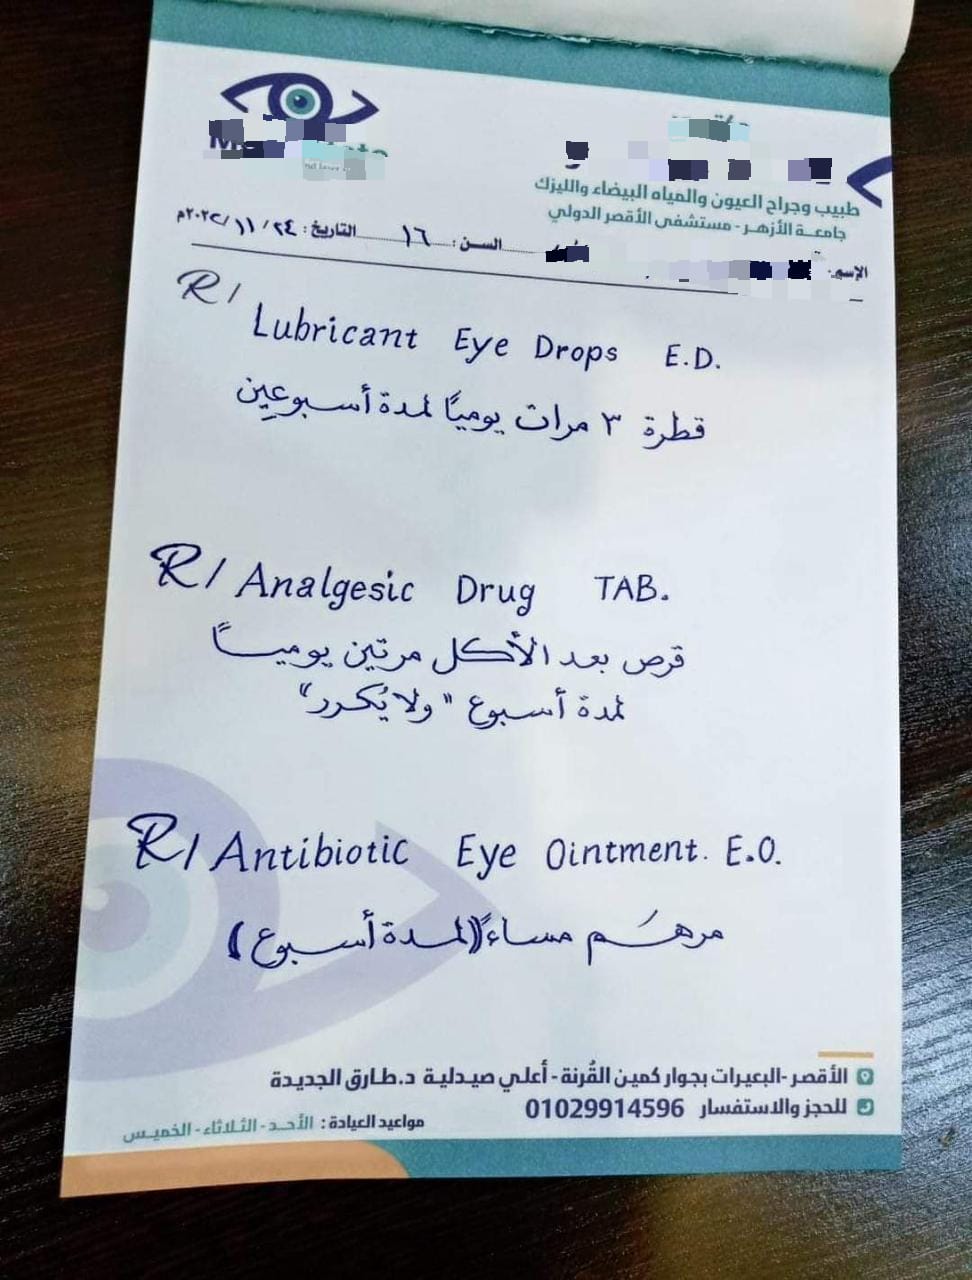 طبيب وجراح العيون والمياه البيضاء والليزك
جامعة الأزهر - مستشفى الأقصر الدولي
الإسم: السن: ١٦ التاريخ: ٢٤ / ١١ / ٢٠٢٢م
R/
Lubricant Eye Drops E.D.
قطرة ٣ مرات يوميًا لمدة أسبوعين
R/ Analgesic Drug TAB.
قرص بعد الأكل مرتين يوميًا
لمدة أسبوع "ولا يُكرر"
R/ Antibiotic Eye Ointment. E.O.
مرهَم مساءً (لمدة أسبوع)
الأقصر -البعيرات بجوار كمين القُرنة - أعلي صيدلية د.طارق الجديدة
للحجز والاستفسار 01029914596
مواعيد العيادة : الأحد - الثلاثاء - الخميس